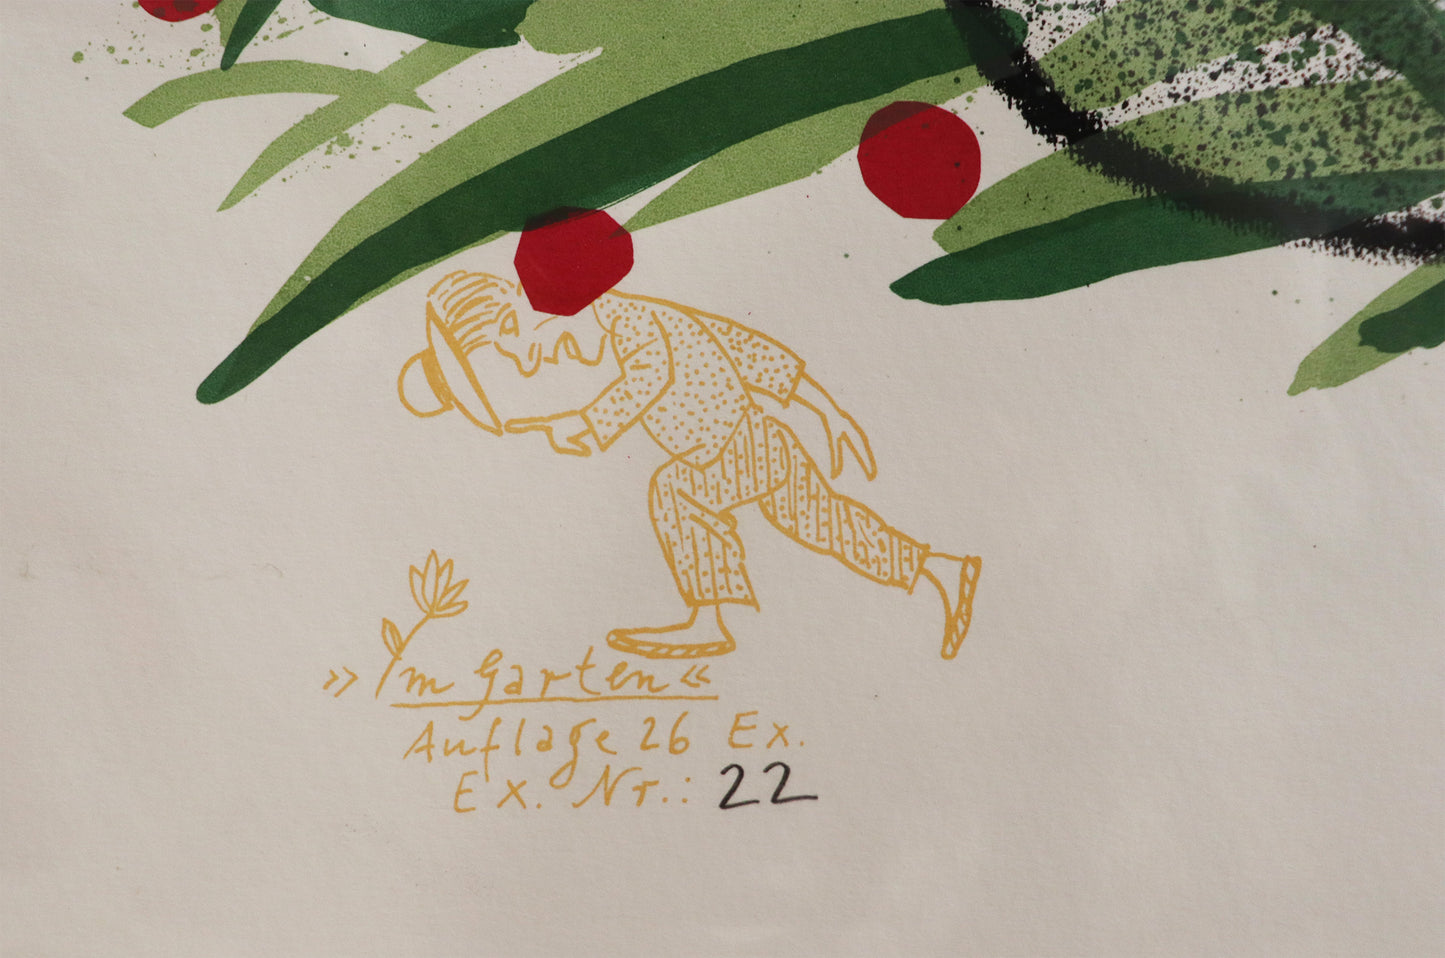 »Im Garten«
Auflage 26 Ex.
Ex. Nr.: 22